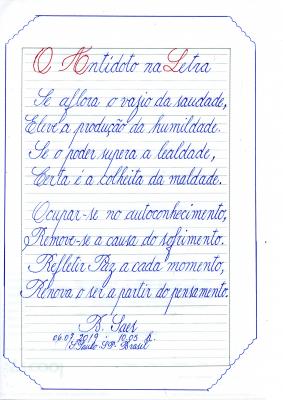 O Antídoto na Letra
Se aflora o vazio da saudade,
Eleve a produção da humildade.
Se o poder supera a lealdade,
Certa é a colheita da maldade.
Ocupar-se no autoconhecimento,
Remove-se a causa do sofrimento.
Refletir Paz a cada momento,
Renova o ser a partir do pensamento.
D. Saes
06.09.2019 : 10.03 h.
S. Paulo. S.P. Brasil